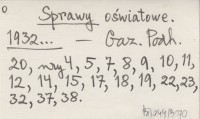 Sprawy oświatowe.
1932... — Gaz. Podh.
20, nry 4, 5, 7, 8, 9, 10, 11,
12, 14, 15, 17, 18, 19, 22, 23,
32, 37, 38.